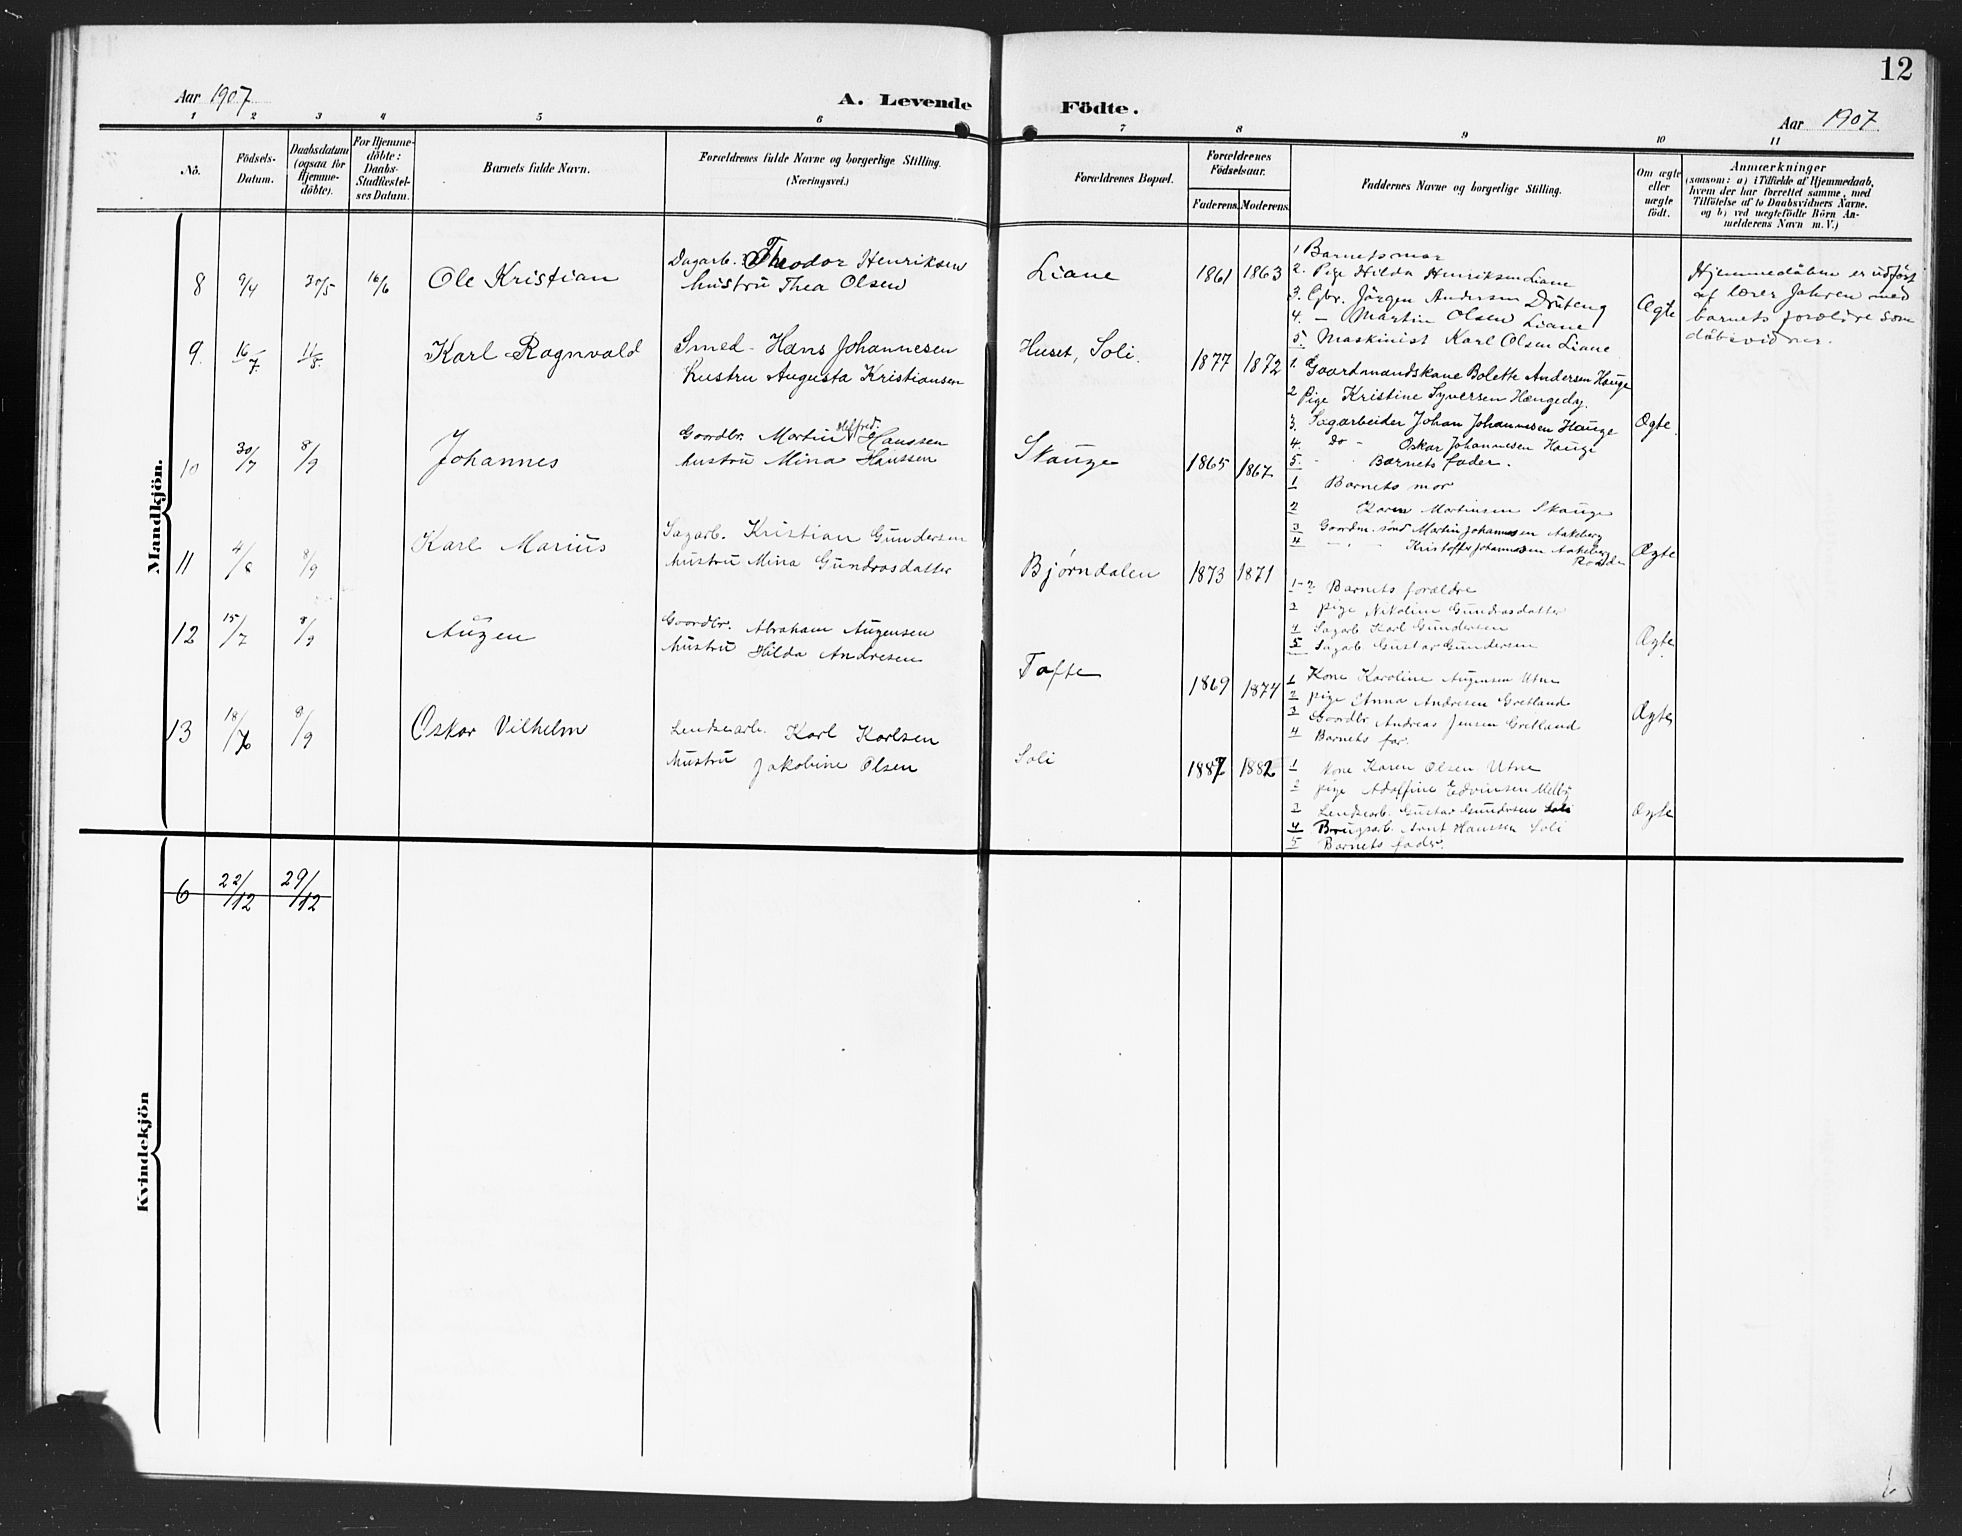 12
Aar 1907
A. Levende Födte.
Aar 1907
1 2 3 4 5 6 7 8 9 10 11
No.
Födsels-
Datum.
Daabsdatum
(ogsaa for
Hjemme-
döbte).
For Hjemme-
döbte:
Daabs-
Stadfæstel-
ses Datum.
Barnets fulde Navn.
Forældrenes fulde Navne og borgerlige Stilling.
(Næringsvei.)
Forældrenes Bopæl.
Forældrenes
Födselsaar.
Faderens. Moderens.
Faddernes Navne og borgerlige Stilling.
Om ægte
eller
uægte
födt.
Anmærkninger
(saasom: a) i Tilfælde af Hjemmedaab,
hvem der har forrettet samme, med
Tilföielse af to Daabsvidners Navne.
og b) ved uægtefödte Börn An-
melderens Navn m. V.)
Mandkjön.
8 9/4 30/5 16/6 Ole Kristian
Dagarb. Theodor Henriksen
hustru Thea Olsen
Liane 1861 1863
1. Barnets mor
2. Pige Hilda Henriksen Liane
3. Gbr. Jörgen Andersen Drüteng
4. – Martin Olsen Liane
5. Maskinist Karl Olsen Liane
Ægte
Hjemmedåben er udfört
af lærer Jahren med
barnets forældre som
dåbsvidner.
9. 16/7 11/8 Karl Ragnvald
Smed Hans Johannesen
hustru Augusta Kristiansen
Huset, Soli. 1877 1872
1. Gaardmandskone Bolette Andersen Hauge
2 Pige Kristine Syversen Hængedy.
3. Sagarbeider Johan Johannesen Hauge
4. do – Oskar Johannesen Hauge
5. Barnets fader.
Ægte.
10 30/7 8/9 Johannes
Gaardbr. Martin Helfred Hanssen
hustru Mina Hanssen
Skauge 1865 1867
1 Barnets mor
2 Karen Martinsen Skauge
3 Gaardm. sönd Martin Johannesen Aakeberg
4 – – Kristoffer Johannesen Aakeberg
Ægte
11 4/8 8/9 Karl Marius
Sagarb. Kristian Gundersen
hustru Mina Gundrosdatter
Bjørndalen 1873 1871
1-2 Barnets forældre
3 pige Nikoline Gundrosdatter
4 Sagarb Karl Gundersen
5 Sagarb Gustav Gundersen
Ægte
12 15/7 8/9 Augen
Gaardbr. Abraham Augensen
hustru Hilda Andresen
Tofte 1869 1874
1 Kone Karoline Augensen Utne
2 pige Anna Andresen Gretland
3 Gaardbr Andreas Jensen Gretland
4 Barnets far.
Ægte
13 18/6 8/9 Oskar Vilhelm
Lendsearb. Karl Karlsen
hustru Jakobine Olsen
Soli 1887 1882
1 Kone Karen Olsen Utne
2 pige Adolfine Edvinsen Melby
3 Lendsearb. Gustav Gundersen Soli
4 Brugsarb. Arnt Hanssen Soli
5 Barnets fader.
Ægte
Kvindekjön
6 22/12 29/12